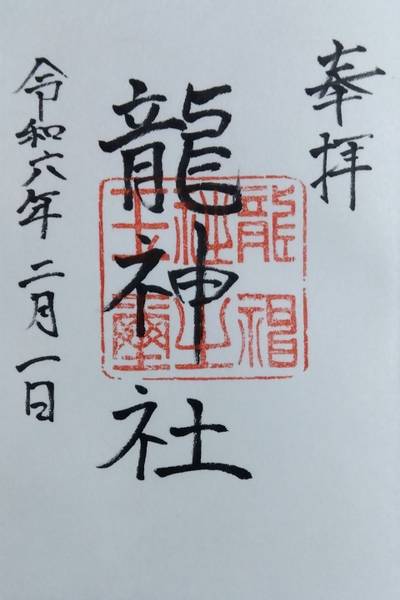 奉拝
龍神社
龍神
社之
璽
令和六年 二月一日